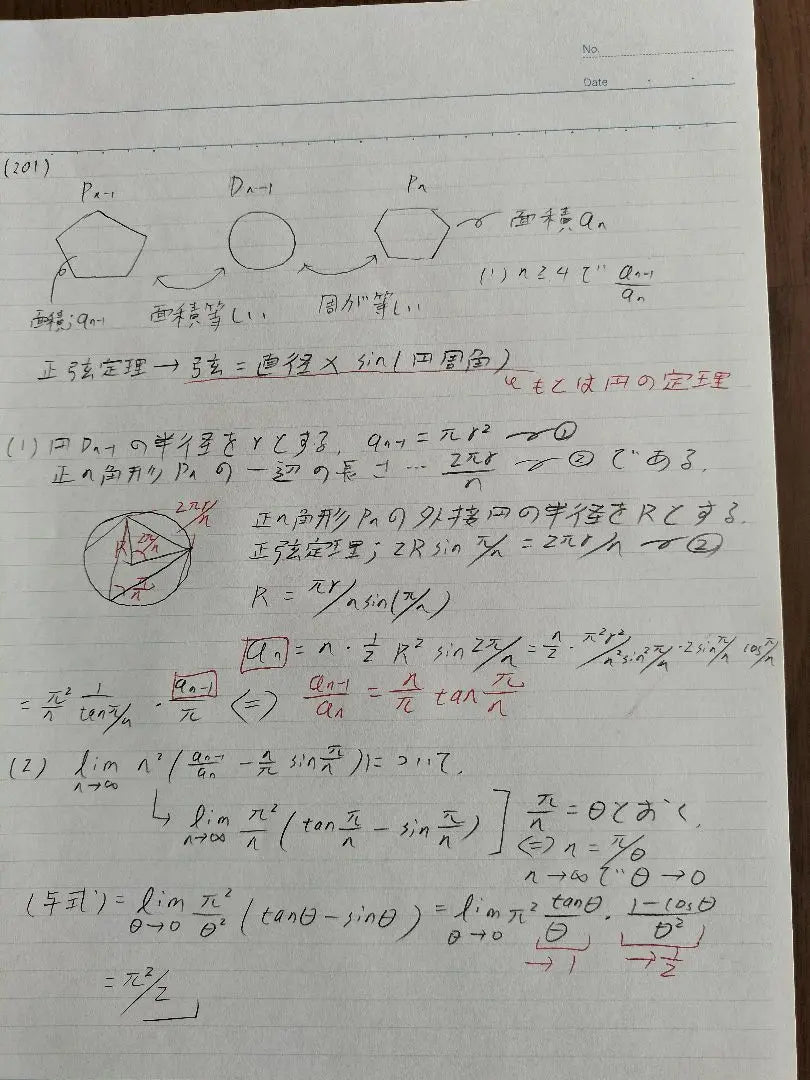 No.
Date
(201)
Pn-1 Dn-1 Pn
面積an
面積;an-1 面積等しい 周が等しい (1) n≧4で an-1/an
正弦定理→弦=直径×sin(円周角)
もとは円の定理
(1) 円Dn-1の半径をrとする. an-1=πr² ~①
正n角形Pnの一辺の長さ… 2πr/n ~② である.
2πr/n
R 2π/n
π/n
正n角形Pnの外接円の半径をRとする.
正弦定理; 2R sin π/n = 2πr/n ~②
R = πr/n sin(π/n)
an = n・1/2 R² sin 2π/n = n/2・π²r²/n² sin² π/n・2 sin π/n cos π/n
= π²/n 1/tan π/n・an-1/π ⇔ an-1/an = n/π tan π/n
(2) lim n→∞ n² (an-1/an - n/π sin π/n)について.
↳ lim n→∞ π²/n (tan π/n - sin π/n)
π/n = θとおく.
⇔ n = π/θ
n→∞で θ→0
(与式) = lim θ→0 π²/θ² (tanθ - sinθ) = lim θ→0 π² tanθ/θ・1-cosθ/θ²
→1 →1/2
= π²/2